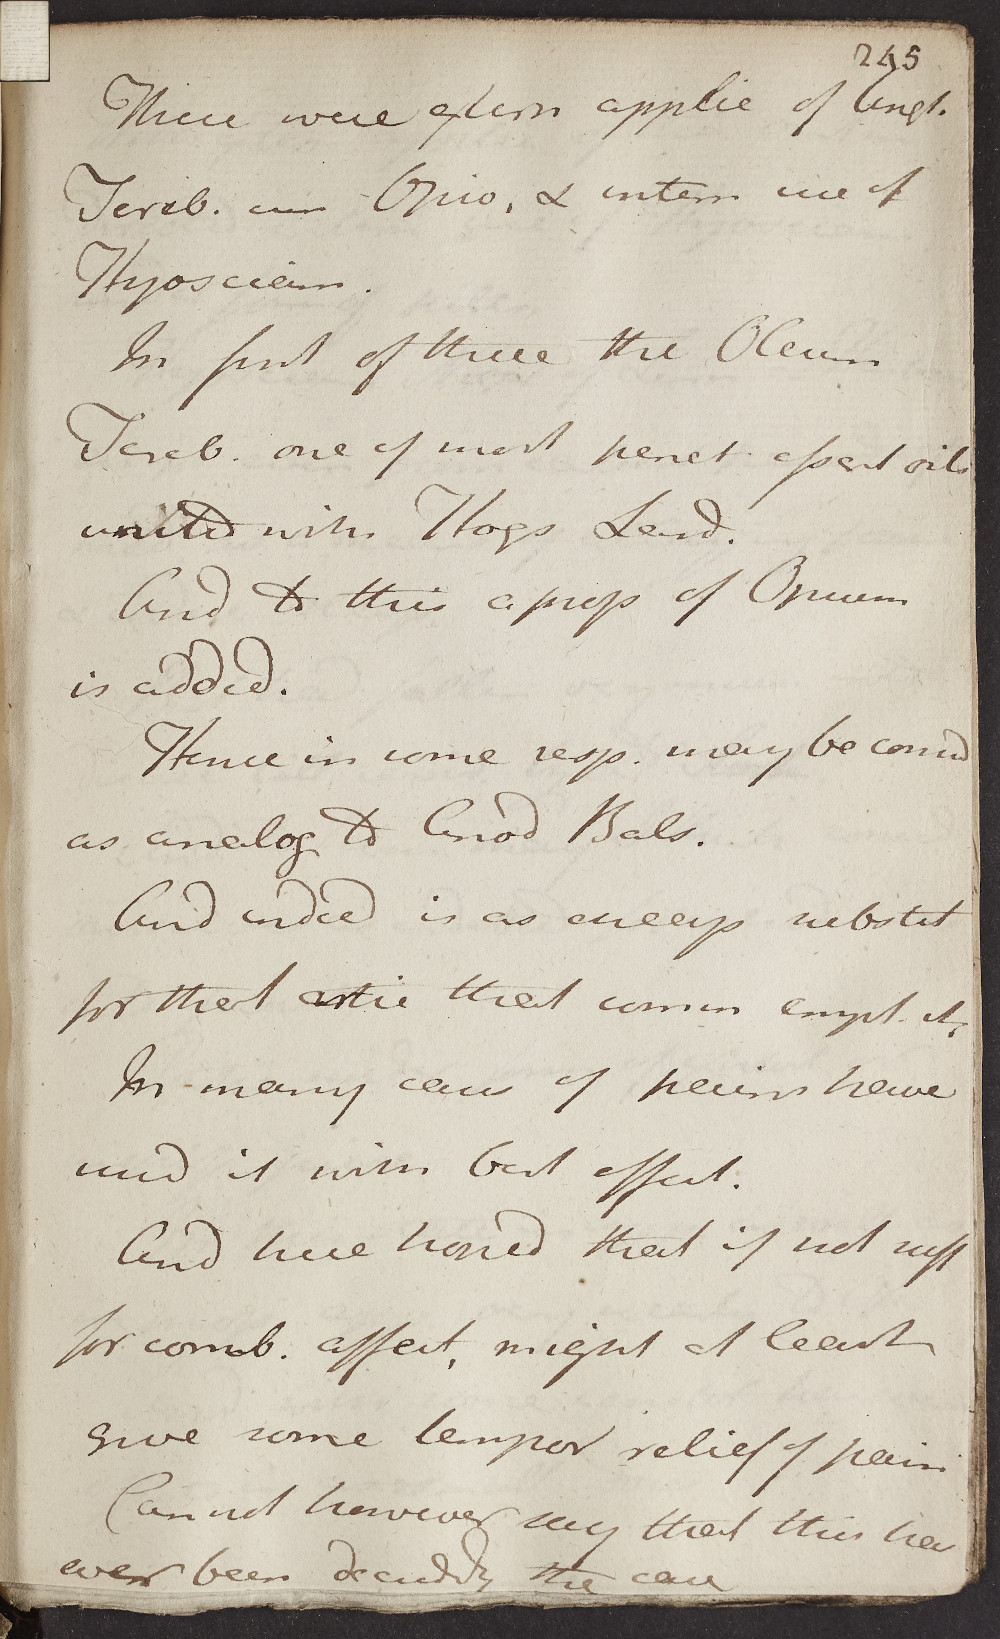 245
These were extern applic of Ungt.
Tereb. cum Opio, & intern use of
Hyosciam.
In first of these the Oleum
Tereb. one of most penet. essent oils
united with Hogs Lard.
And to this a prop of Opium
is added.
Hence in some resp. may be consd
as analog to Anod Bals.
And indeed is as cheap substit
for that artic that comm empl. it,
In many cases of pains have
used it with best effect.
And here hoped that if not suff
for comb. affect, might at least
give some tempor relief of pain
Cannot however say that this has
ever been decidedly the case